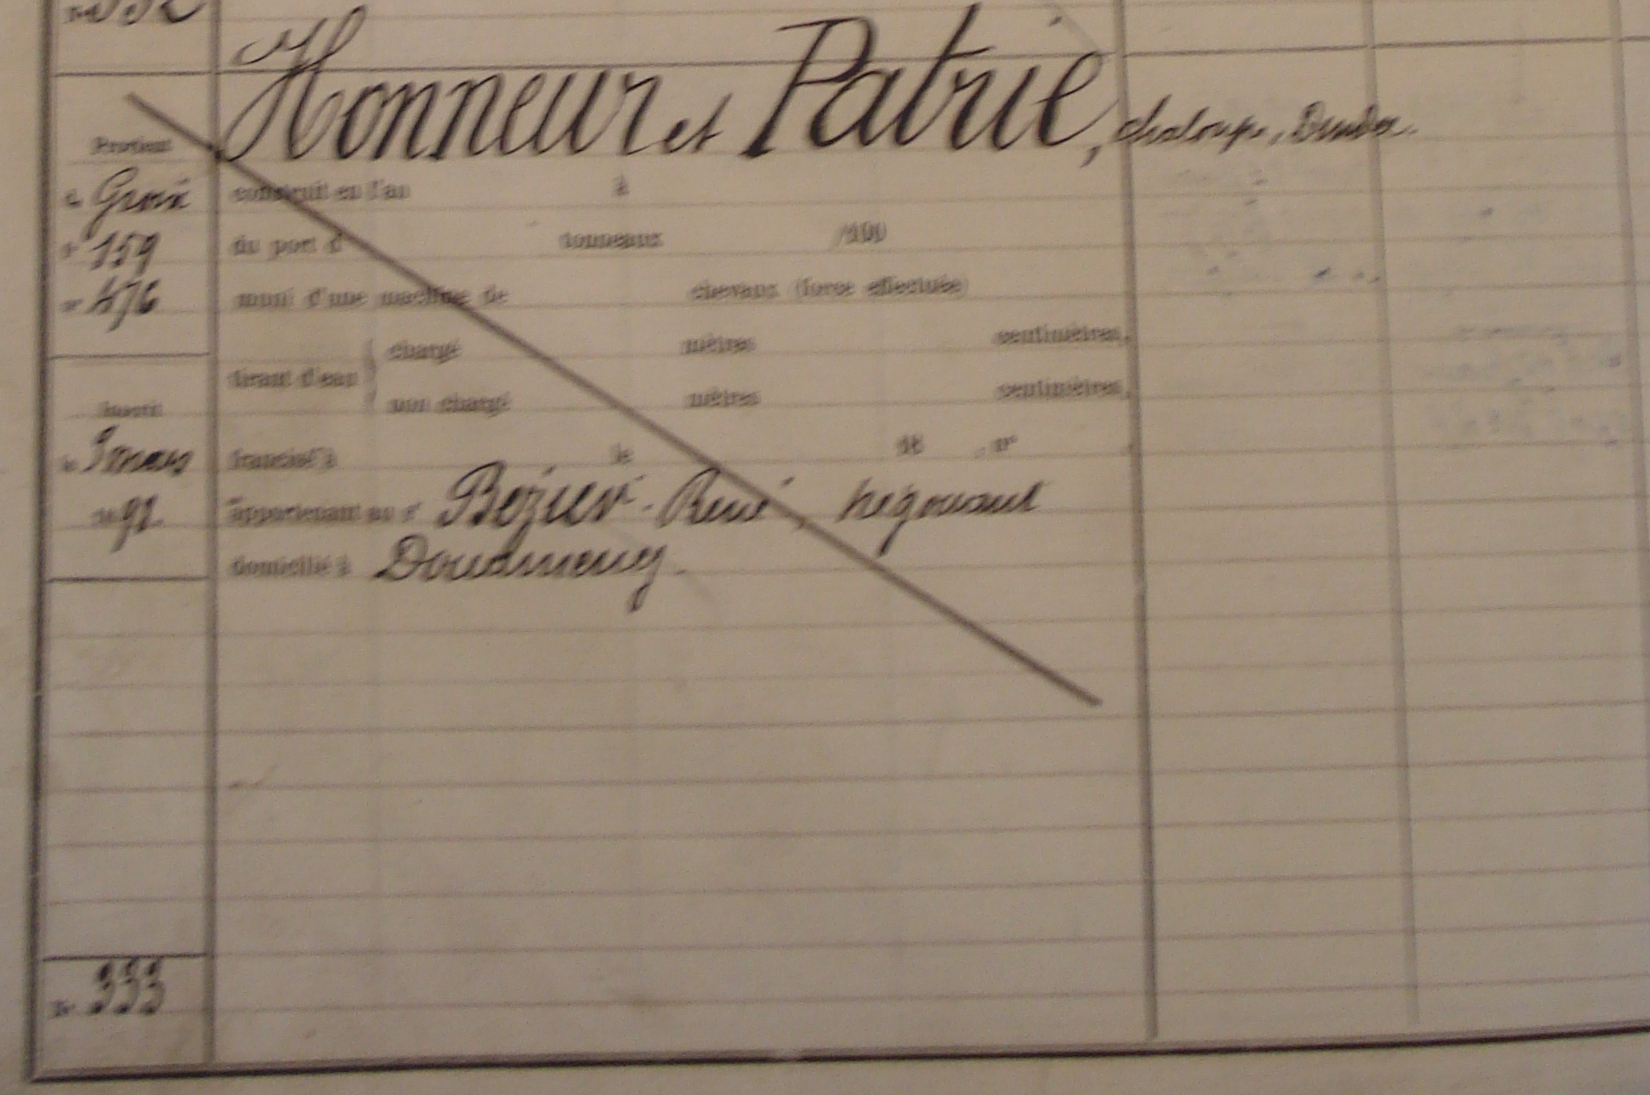 332
Honneur et Patrie, chaloupe, Dundee.
Provient
de Groix
f° 159
n° 476
construit en l'an à
du port d tonneaux /100
muni d'une machine de chevaux (force effective)
tirant d'eau
chargé mètres centimètres,
non chargé mètres centimètres,
Inscrit
le 9 mars
1892
francisé à le 18 , n° .
appartenant au sr Bézier-René, négociant
domicilié à
N° 333